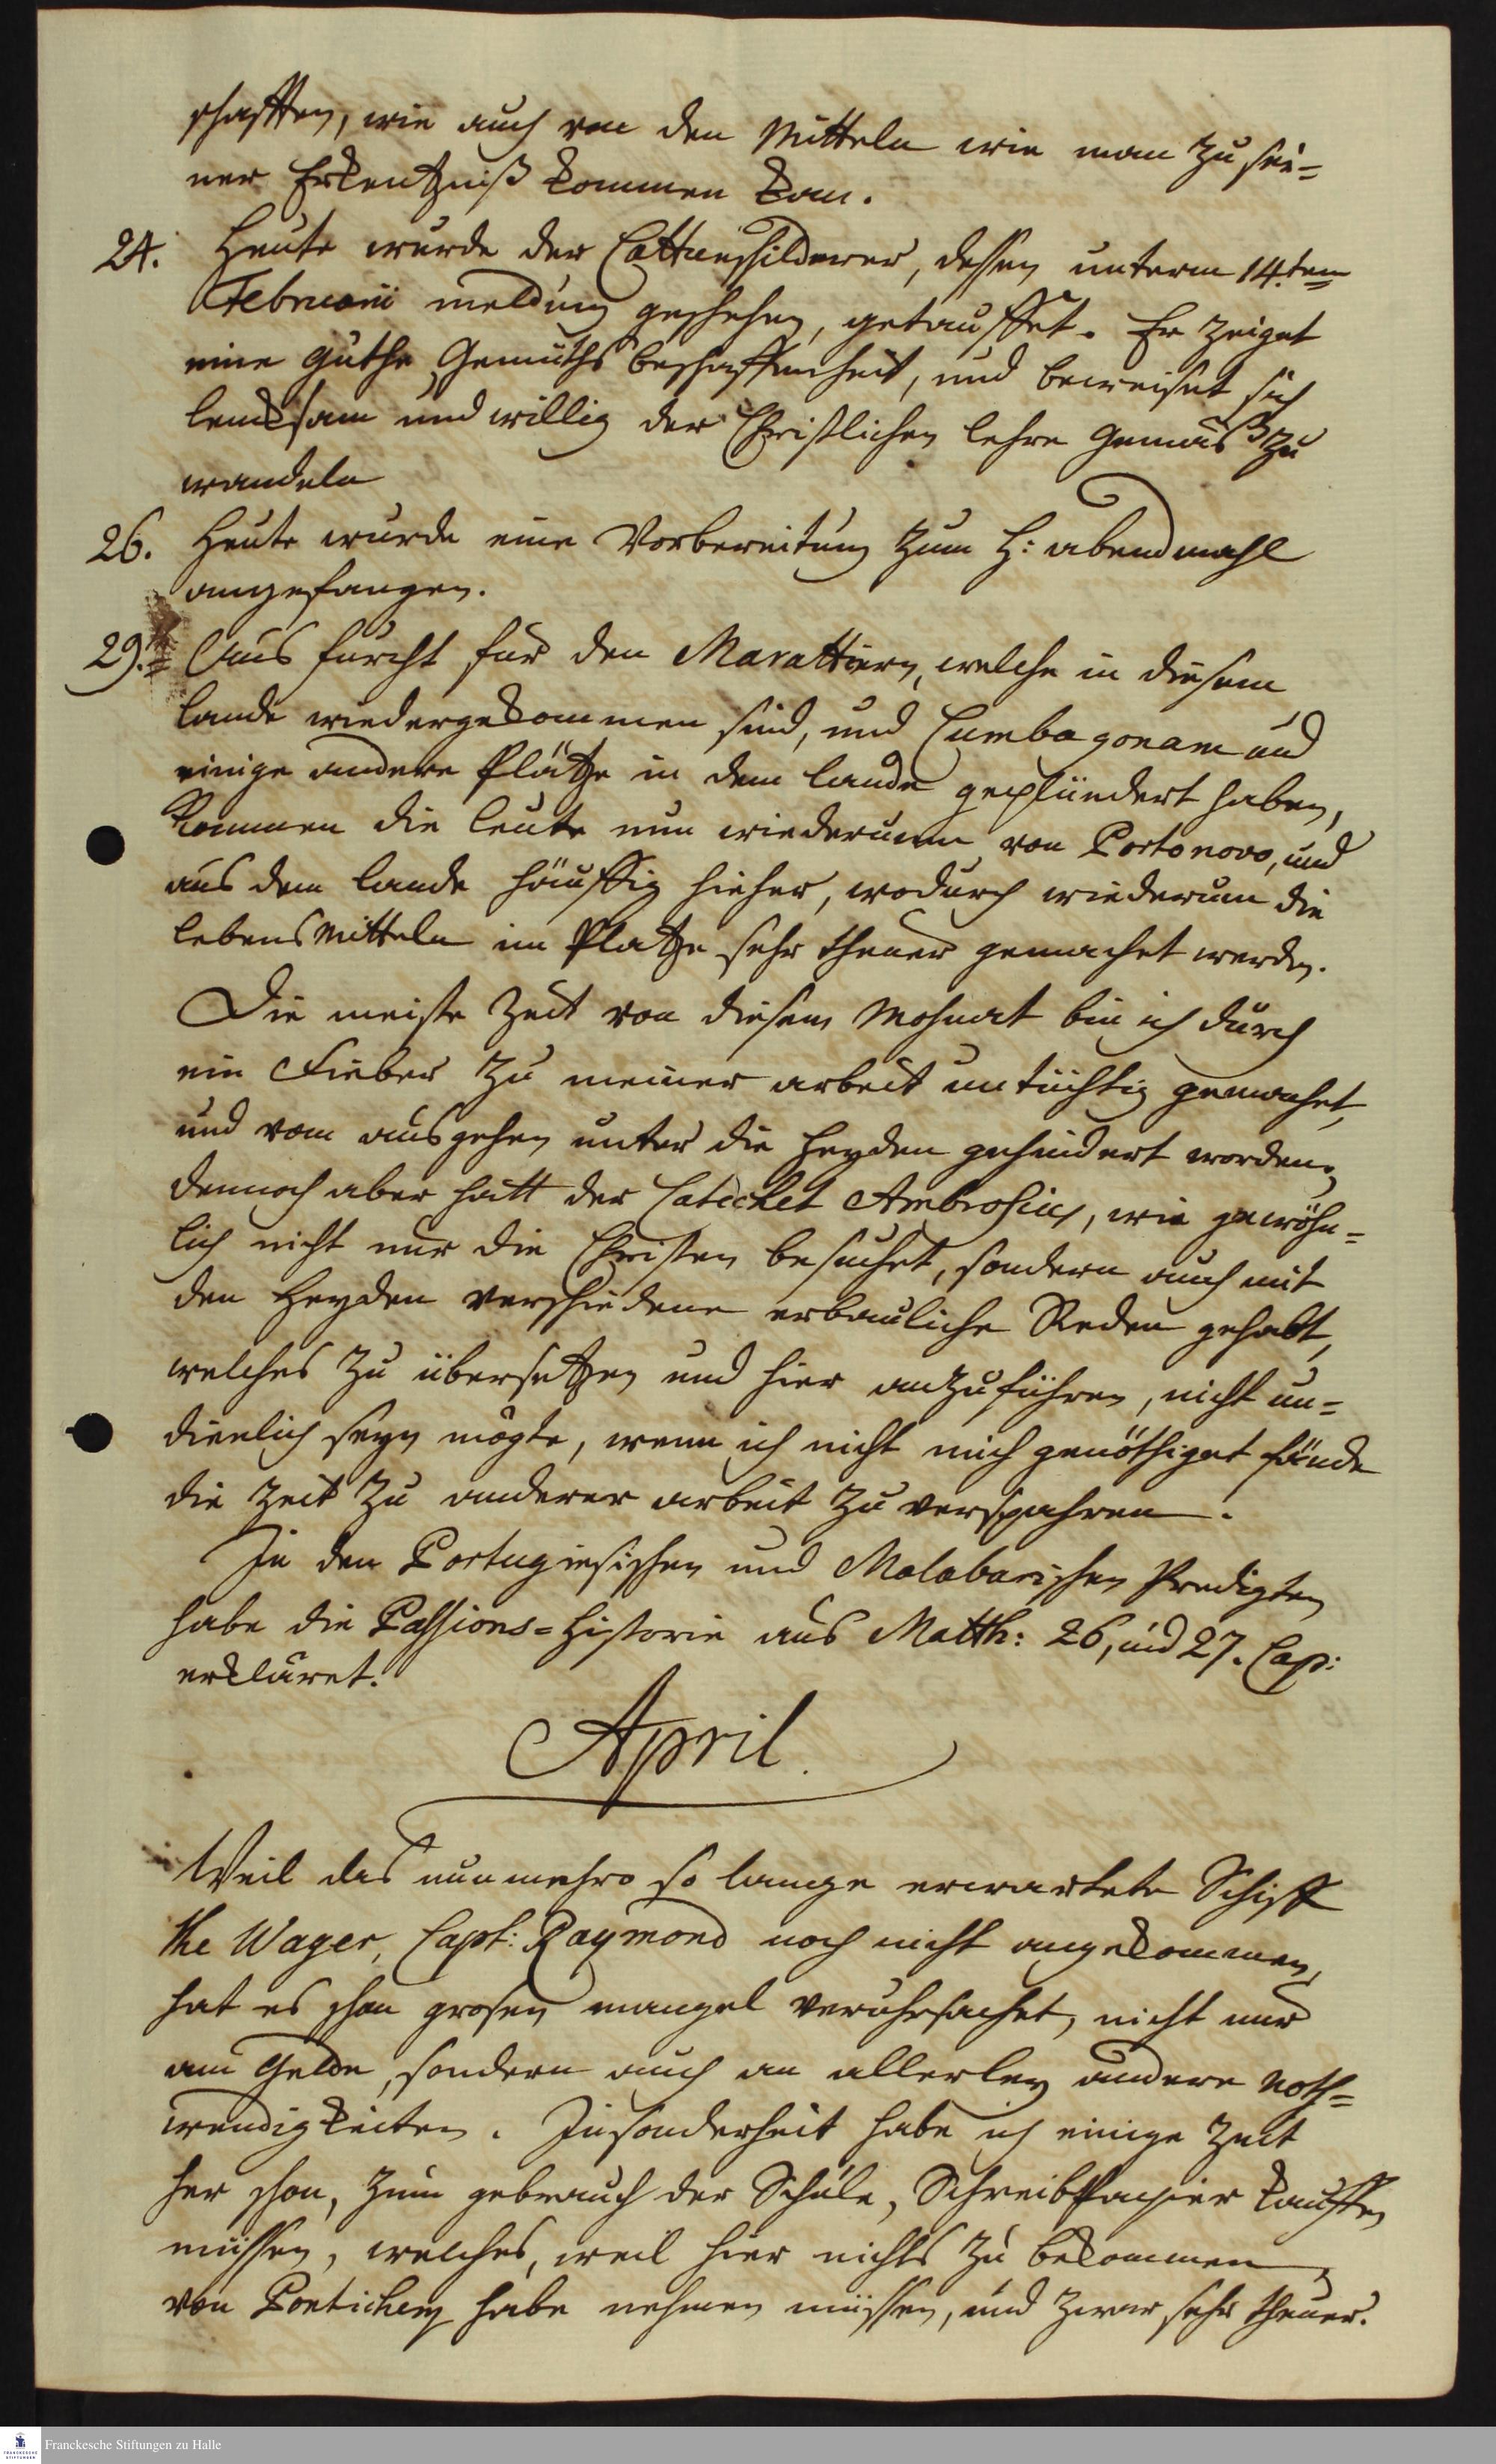 schafften, wie auch von den Mitteln wie man zu sei=
ner Erkentniß kommen kan.
24. Heute wurde der Cattunschilderer, dessen unterm 14.ten
Februarii meldung geschehen, getauffet. Er zeiget
eine guthe Gemüths beschaffenheit, und beweiset sich
lencksam und willig der Christlichen lehre gemäß zu
wandeln
26. Heute wurde eine Vorbereitung zum H: abendmahl
angefangen.
29. Aus furcht für den Marattiern, welche in diesem
lande wiedergekommen sind, und Cumbagonam und
einige andere Plätze in dem lande geplündert haben,
kommen die leute nun wiederumm von Portonovo, und
aus dem lande häuffig hieher, wodurch wiederum die
lebensMitteln im Platze sehr theuer gemachet werden.
Die meiste Zeit von diesem Mohnat bin ich durch
ein Fieber zu meiner arbeit untüchtig gemachet,
und vom ausgehen unter die Heyden gehindert worden,
dennoch aber hatt der Catechet Ambrosius, wie gewöhn=
lich nicht nur die Christen besuchet, sondern auch mit
den Heyden verschiedene erbauliche Reden gehabt,
welches zu übersetzen und hier anzuführen, nicht un=
dienlich seyn mögte, wenn ich nicht mich genöthiget fände
die Zeit zu anderer arbeit zu verspahren.
In den Portugiesischen und Malabarischen Predigten
habe die Passions=Historie aus Matth: 26, und 27. Cap:
erkläret.
April.
Weil das nunmehro so lange erwartete Schiff
the Wager, Capt: Raymond noch nicht angekommen,
hat es schon grosen mangel veruhrsachet, nicht nur
am Gelde, sondern auch an allerley andere Noth=
wendigkeiten. Insonderheit habe ich einige Zeit
her schon, zum gebrauch der Schule, SchreibPapier kauffen
müssen, welches, weil hier nichts zu bekommen,
von Pontichery habe nehmen müssen, und zwar sehr theuer.
Franckesche Stiftungen zu Halle